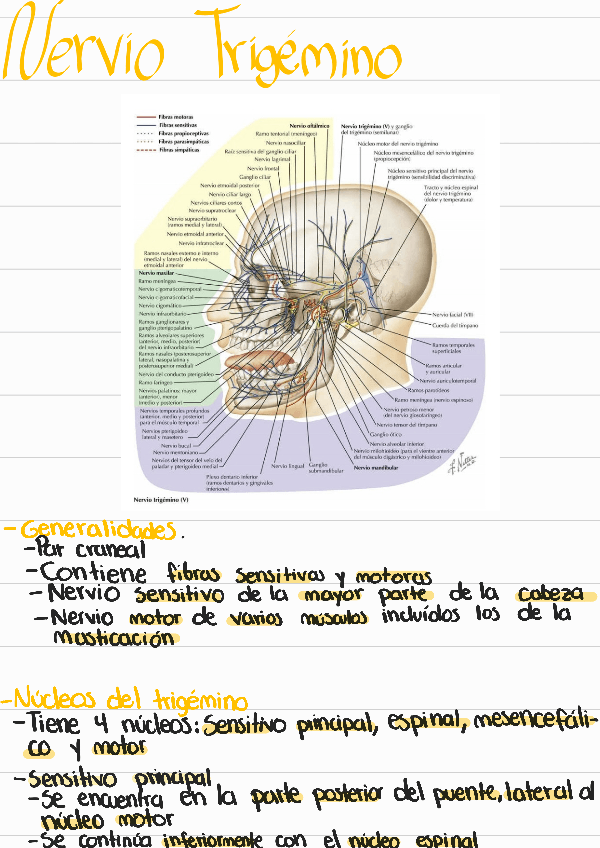 Nervio Trigémino
Fibras motoras
Fibras sensitivas
Fibras propioceptivas
Fibras parasimpáticas
Fibras simpáticas
Nervio oftálmico
Ramo tentorial (meníngeo)
Nervio nasociliar
Raíz sensitiva del ganglio ciliar
Nervio lagrimal
Nervio frontal
Ganglio ciliar
Nervio etmoidal posterior
Nervio ciliar largo
Nervios ciliares cortos
Nervio supratroclear
Nervio supraorbitario
(ramos medial y lateral)
Nervio etmoidal anterior
Nervio infratroclear
Ramos nasales externo e interno
(medial y lateral) del nervio
etmoidal anterior
Nervio maxilar
Ramo meníngeo
Nervio cigomaticotemporal
Nervio cigomaticofacial
Nervio cigomático
Nervio infraorbitario
Ramos ganglionares y
ganglio pterigopalatino
Ramos alveolares superiores
(anterior, medio, posterior)
del nervio infraorbitario
Ramos nasales (posterosuperior
lateral, nasopalatina y
posterosuperior medial)
Nervio del conducto pterigoideo
Ramo faríngeo
Nervios palatinos: mayor
(anterior), menor
(medio y posterior)
Nervios temporales profundos
(anterior, medio y posterior)
para el músculo temporal
Nervios pterigoideo
lateral y masetero
Nervio bucal
Nervio mentoniano
Nervios del tensor del velo del
paladar y pterigoideo medial
Plexo dentario inferior
(ramos dentarios y gingivales
inferiores)
Nervio lingual
Ganglio
submandibular
Nervio trigémino (V) y ganglio
del trigémino (semilunar)
Núcleo motor del nervio trigémino
Núcleo mesencefálico del nervio trigémino
(propiocepción)
Núcleo sensitivo principal del nervio
trigémino (sensibilidad discriminativa)
Tracto y núcleo espinal
del nervio trigémino
(dolor y temperatura)
Nervio facial (VII)
Cuerda del tímpano
Ramos temporales
superficiales
Ramos articular
y auricular
Nervio auriculotemporal
Ramos parotídeos
Ramo meníngeo (nervio espinoso)
Nervio petroso menor
(del nervio glosofaríngeo)
Nervio tensor del tímpano
Ganglio ótico
Nervio alveolar inferior
Nervio milohioideo (para el vientre anterior
del músculo digástrico y milohioideo)
Nervio mandibular
Nervio trigémino (V)
- Generalidades.
- Par craneal
- Contiene fibras sensitivas y motoras
- Nervio sensitivo de la mayor parte de la cabeza
- Nervio motor de varios músculos incluídos los de la
masticación
- Núcleos del trigémino
- Tiene 4 núcleos: Sensitivo principal, espinal, mesencefáli-
co y motor
- Sensitivo principal
- Se encuentra en la parte posterior del puente, lateral al
núcleo motor
- Se continúa inferiormente con el núcleo espinal